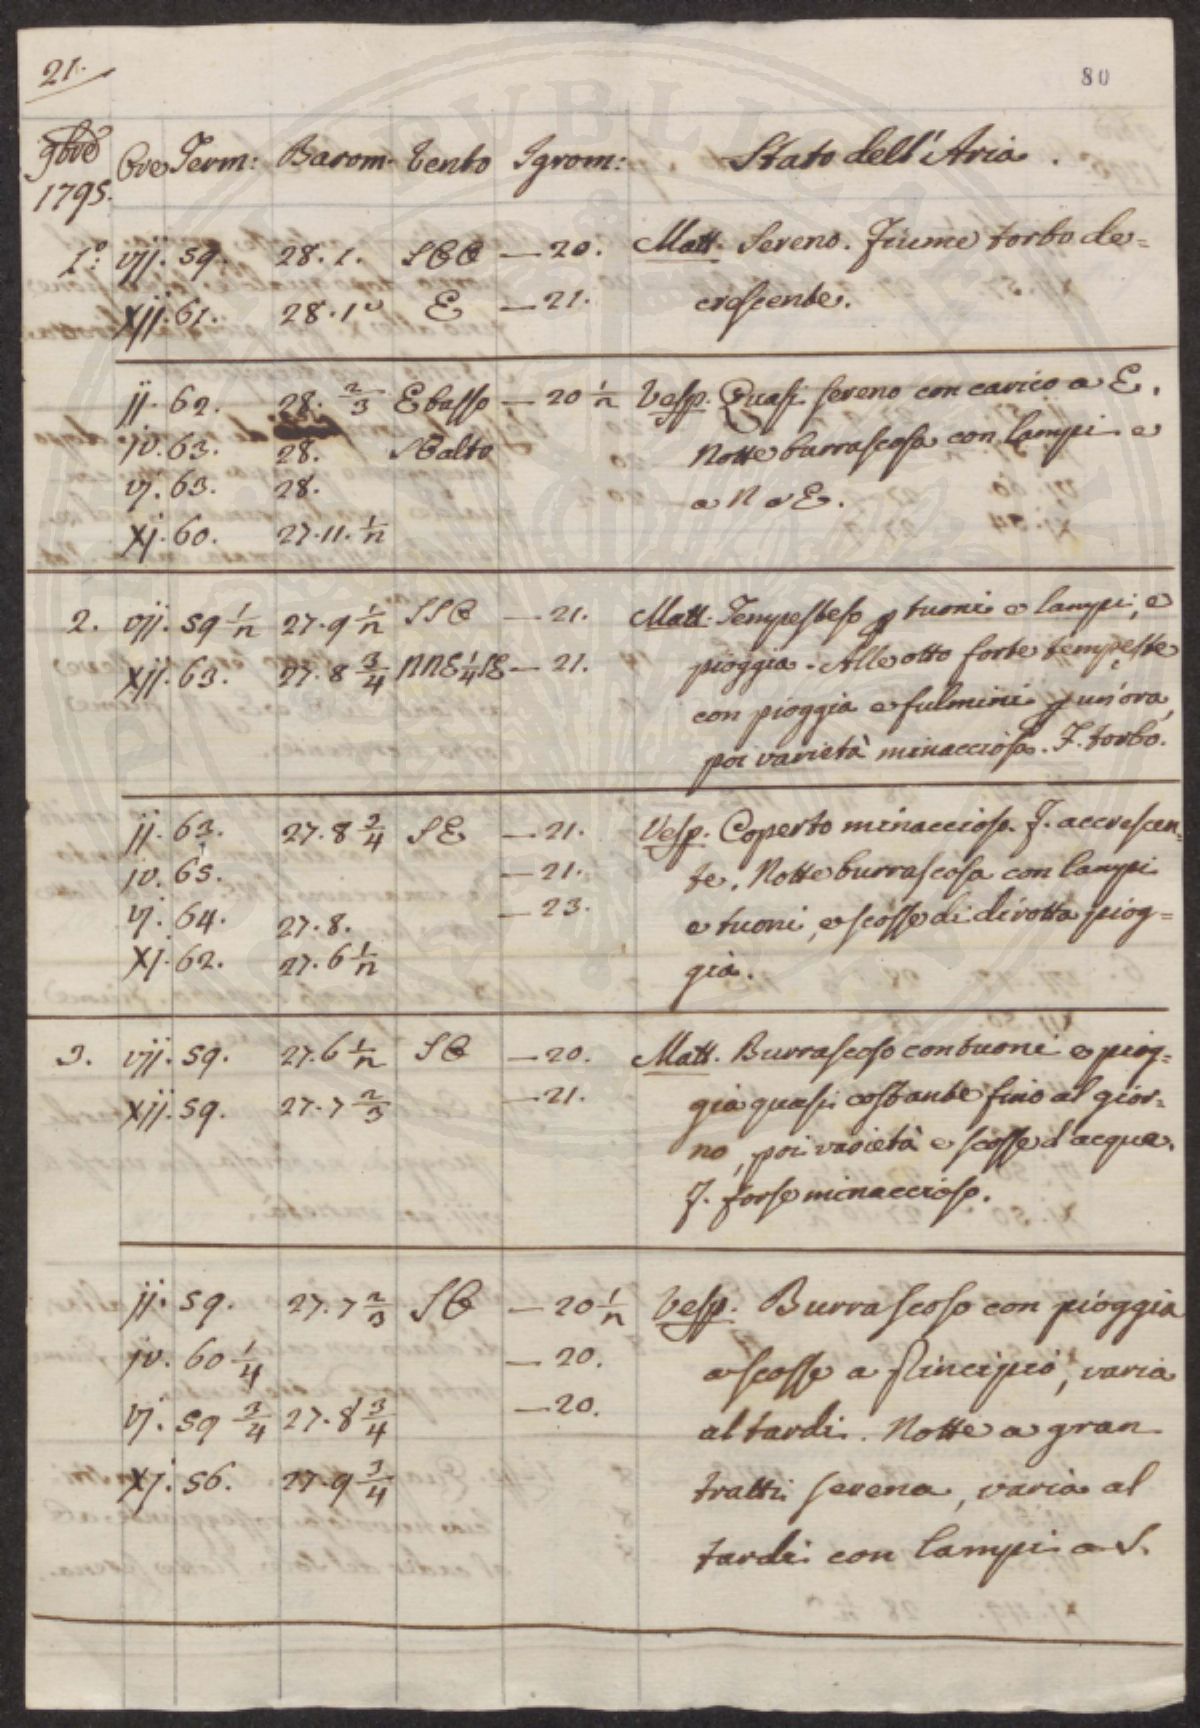 21.
80
9bre
1795.
Ore Term: Barom. Vento Igrom: Stato dell'Aria.
1.° vij. 59. 28. 1. SOO — 20. Matt. Sereno. Fiume torbo de=
xij. 61. 28. 1 E — 21. crescente.
ij. 62. 28. 2/3 E basso — 20 1/2 Vesp. Quasi sereno con carico a E.
iv. 63. 28. SO alto Notte burrascosa con lampi e
vj. 63. 28. a N e E.
xj. 60. 27. 11. 1/2
2. vij. 59 1/2 27. 9 1/2 SSO — 21. Matt. Tempestoso p tuoni e lampi, e
xij. 63. 27. 8 3/4 NNE 1/4 SE — 21. pioggia. Alle otto forte tempeste
con pioggia e fulmini p un'ora,
poi varietà minacciosa. F. torbo.
ij. 63. 27. 8 2/4 SE — 21. Vesp. Coperto minaccioso. F. accrescen=
iv. 65. — 21. te. Notte burrascosa con lampi
vj. 64. 27. 8. — 23. e tuoni, e scosse di dirotta piog=
xj. 62. 27. 6 1/2 gia.
3. vij. 59. 27. 6 1/2 SO — 20. Matt. Burrascoso con tuoni e piog=
xij. 59. 27. 7 2/3 — 21. gia quasi costante fino al gior=
no, poi varietà e scosse d'acqua.
F. forse minaccioso.
ij. 59. 27. 7 2/3 SO — 20 1/2 Vesp. Burrascoso con pioggia
iv. 60 1/4 — 20. a scosse a principio, varia
vj. 59 3/4 27. 8 3/4 — 20. al tardi. Notte a gran
xj. 56. 27. 9 3/4 tratti serena, varia al
tardi con lampi a S.